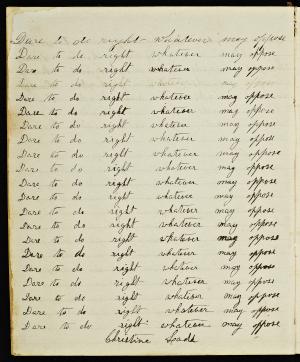 Dare to do right whatever may oppose
Dare to do right whatever may oppose
Dare to do right whatever may oppose
Dare to do right whatever may oppose
Dare to do right whatever may oppose
Dare to do right whatever may oppose
Dare to do right whatever may oppose
Dare to do right whatever may oppose
Dare to do right whatever may oppose
Dare to do right whatever may oppose
Dare to do right whatever may oppose
Dare to do right whatever may oppose
Dare to do right whatever may oppose
Dare to do right whatever may oppose
Dare to do right whatever may oppose
Dare to do right whatever may oppose
Dare to do right whatever may oppose
Dare to do right whatever may oppose
Dare to do right whatever may oppose
Dare to do right whatever may oppose
Dare to do right whatever may oppose
Christine